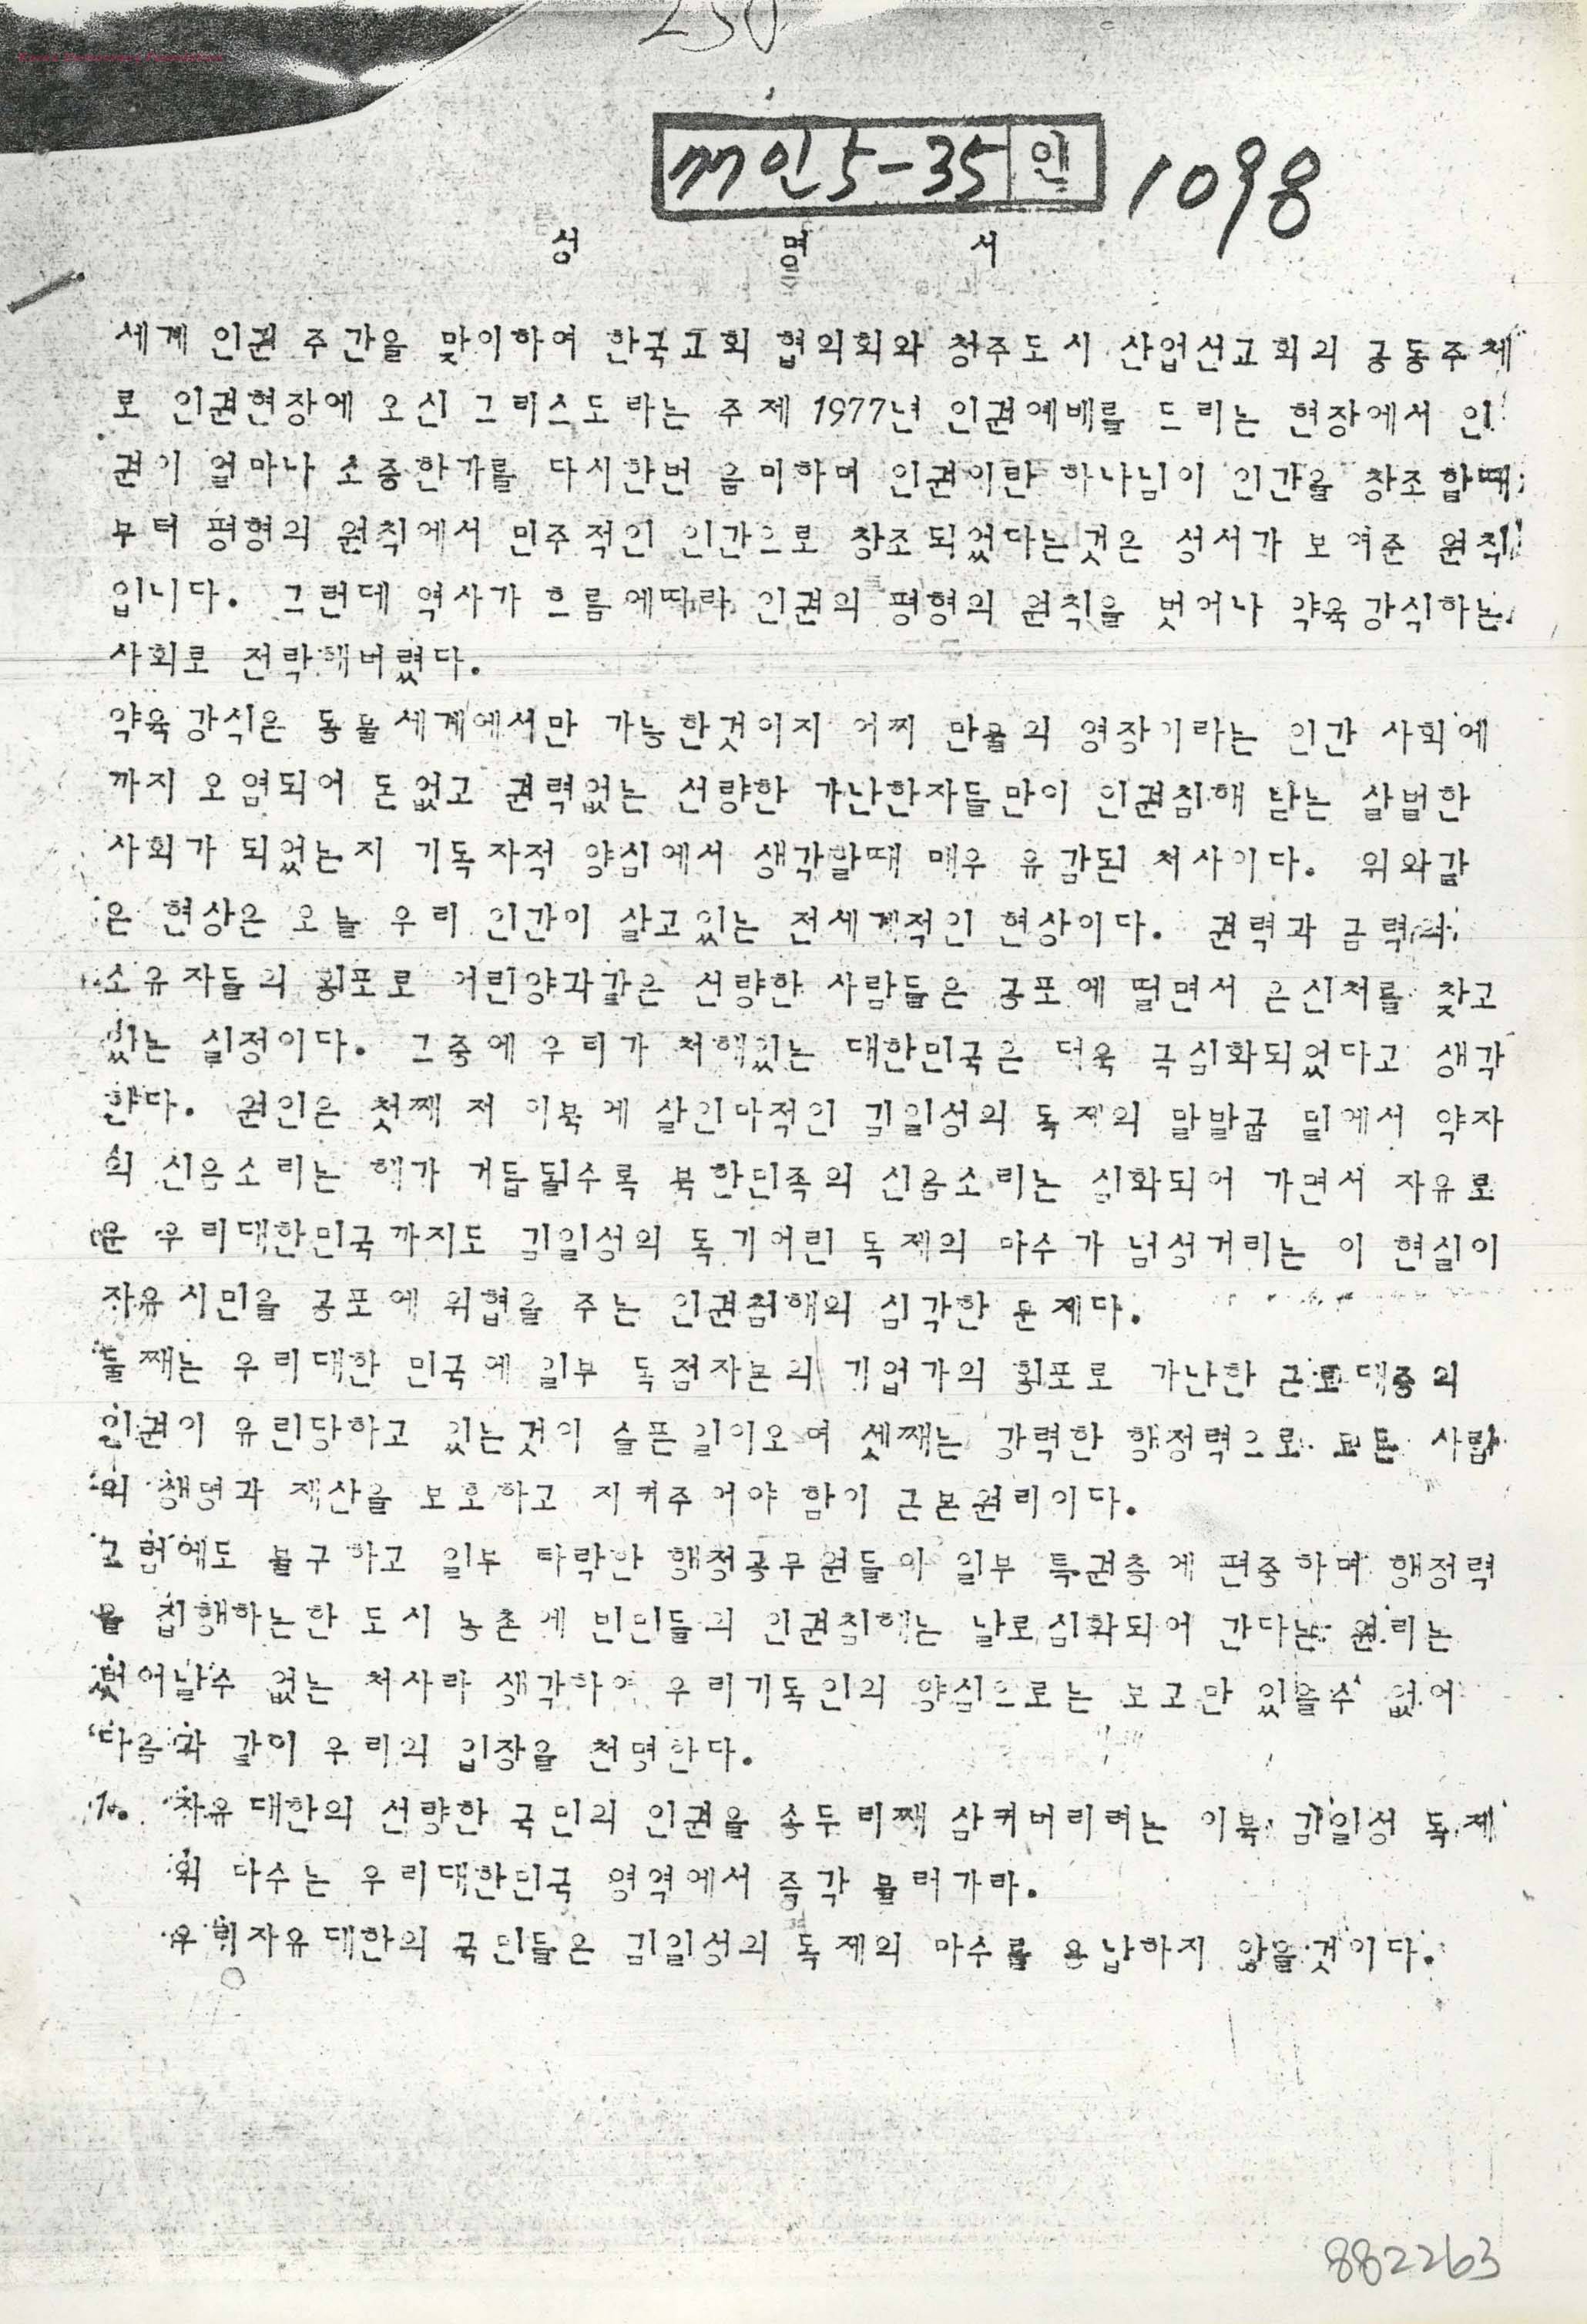 230
77인5-35 인 1098
성 명 서
세계 인권 주간을 맞이하여 한국교회 협의회와 청주도시 산업선교회의 공동주체
로 인권현장에 오신 그리스도라는 주제 1977년 인권예배를 드리는 현장에서 인
권이 얼마나 소중한가를 다시한번 음미하며 인권이란 하나님이 인간을 창조할때
부터 평형의 원칙에서 민주적인 인간으로 창조되었다는것은 성서가 보여준 원칙
입니다. 그런데 역사가 흐름에따라 인권의 평형의 원칙을 벗어나 약육강식하는
사회로 전락해버렸다.
약육강식은 동물세계에서만 가능한것이지 어찌 만물의 영장이라는 인간 사회에
까지 오염되어 돈없고 권력없는 선량한 가난한자들만이 인권침해 받는 살벌한
사회가 되었는지 기독자적 양심에서 생각할때 매우 유감된 처사이다. 위와같
은 현상은 오늘 우리 인간이 살고있는 전세계적인 현상이다. 권력과 금력의
소유자들의 횡포로 어린양과같은 선량한 사람들은 공포에 떨면서 은신처를 찾고
있는 실정이다. 그중에 우리가 처해있는 대한민국은 더욱 극심화되었다고 생각
한다. 원인은 첫째 저 이북에 살인마적인 김일성의 독재의 말발굽 밑에서 약자
의 신음소리는 해가 거듭될수록 북한민족의 신금소리는 심화되어 가면서 자유로
운 우리대한민국까지도 김일성의 독기어린 독재의 마수가 넘성거리는 이 현실이
자유시민을 공포에 위협을 주는 인권침해의 심각한 문제다.
둘째는 우리대한 민국에 일부 독점자본의 기업가의 횡포로 가난한 근로대중의
인권이 유린당하고 있는것이 슬픈일이오며 셋째는 강력한 행정력으로 모든 사람
의 생명과 재산을 보호하고 지켜주어야 함이 근본원리이다.
그럼에도 불구하고 일부 타락한 행정공무원들이 일부 특권층에 편중하며 행정력
을 집행하는한 도시 농촌에 빈민들의 인권침해는 날로심화되어 간다는 원리는
벗어날수 없는 처사라 생각하여 우리기독인의 양심으로는 보고만 있을수 없어
다음과 같이 우리의 입장을 천명한다.
1. 자유대한의 선량한 국민의 인권을 송두리째 삼켜버리려는 이북 김일성 독재
의 마수는 우리대한민국 영역에서 즉각 물러가라.
우리자유대한의 국민들은 김일성의 독재의 마수를 용납하지 않을것이다.
882263